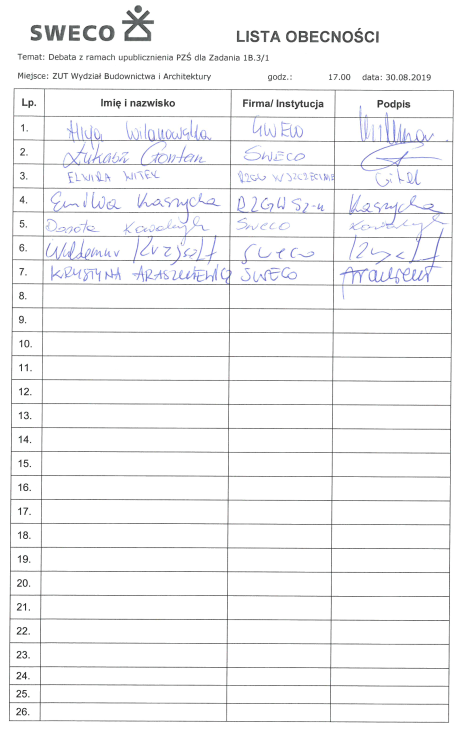 SWECO
LISTA OBECNOŚCI
Temat: Debata z ramach upublicznienia PZŚ dla Zadania 1B.3/1
Miejsce: ZUT Wydział Budownictwa i Architektury godz.: 17.00 data: 30.08.2019
Lp. Imię i nazwisko Firma/ Instytucja Podpis
1. Alicja Wilanowska SWECO
2. Łukasz Gontan SWECO
3. ELWIRA WITEK RZGW W SZCZECINIE Witek
4. Emilia Kaszycka RZGW Sz-n Kaszycka
5. Dorota Sweco
6. Waldemar Sweco
7. KRYSTYNA ARASZKIEWICZ SWECO
8.
9.
10.
11.
12.
13.
14.
15.
16.
17.
18.
19.
20.
21.
22.
23.
24.
25.
26.